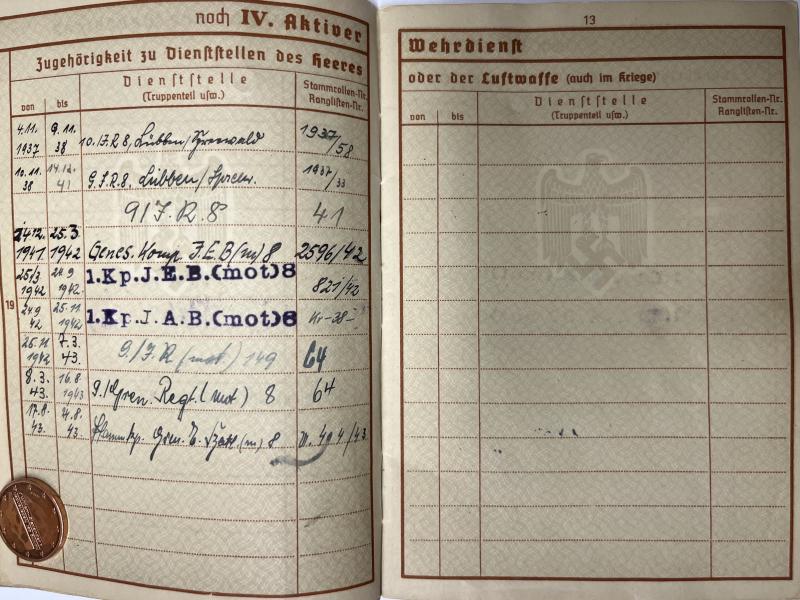 noch IV. Aktiver
Zugehörigkeit zu Dienststellen des Heeres
von bis Dienststelle (Truppenteil usw.) Stammrollen-Nr. Ranglisten-Nr.
4.11. 1937 9.11. 38 10./J.R.8, Lübben/Spreewald 1937/58
10.11. 38 14.12. 41 9.J.R.8, Lübben/Spreew. 1937/33
9/J.R.8 41
1941 25.3. 1942 Genes. Komp. J.E.B(m) 8 2596/42
25/3 1942 24.9 1942. 1.Kp.J.E.B.(mot)8 821/42
19
24.9 42 25.11. 1942 1.Kp.J.A.B.(mot)8 Kr-38-
25.11. 1942 7.3. 43. 9./J.R (mot) 149 64
8.3. 43. 16.8. 1943 9./Gren. Regt. (mot) 8 64
17.8. 43. 4.8. 43. Stammkp. Gren. E. Batl (m) 8 494/43
13
Wehrdienst
oder der Luftwaffe (auch im Kriege)
von bis Dienststelle (Truppenteil usw.) Stammrollen-Nr. Ranglisten-Nr.